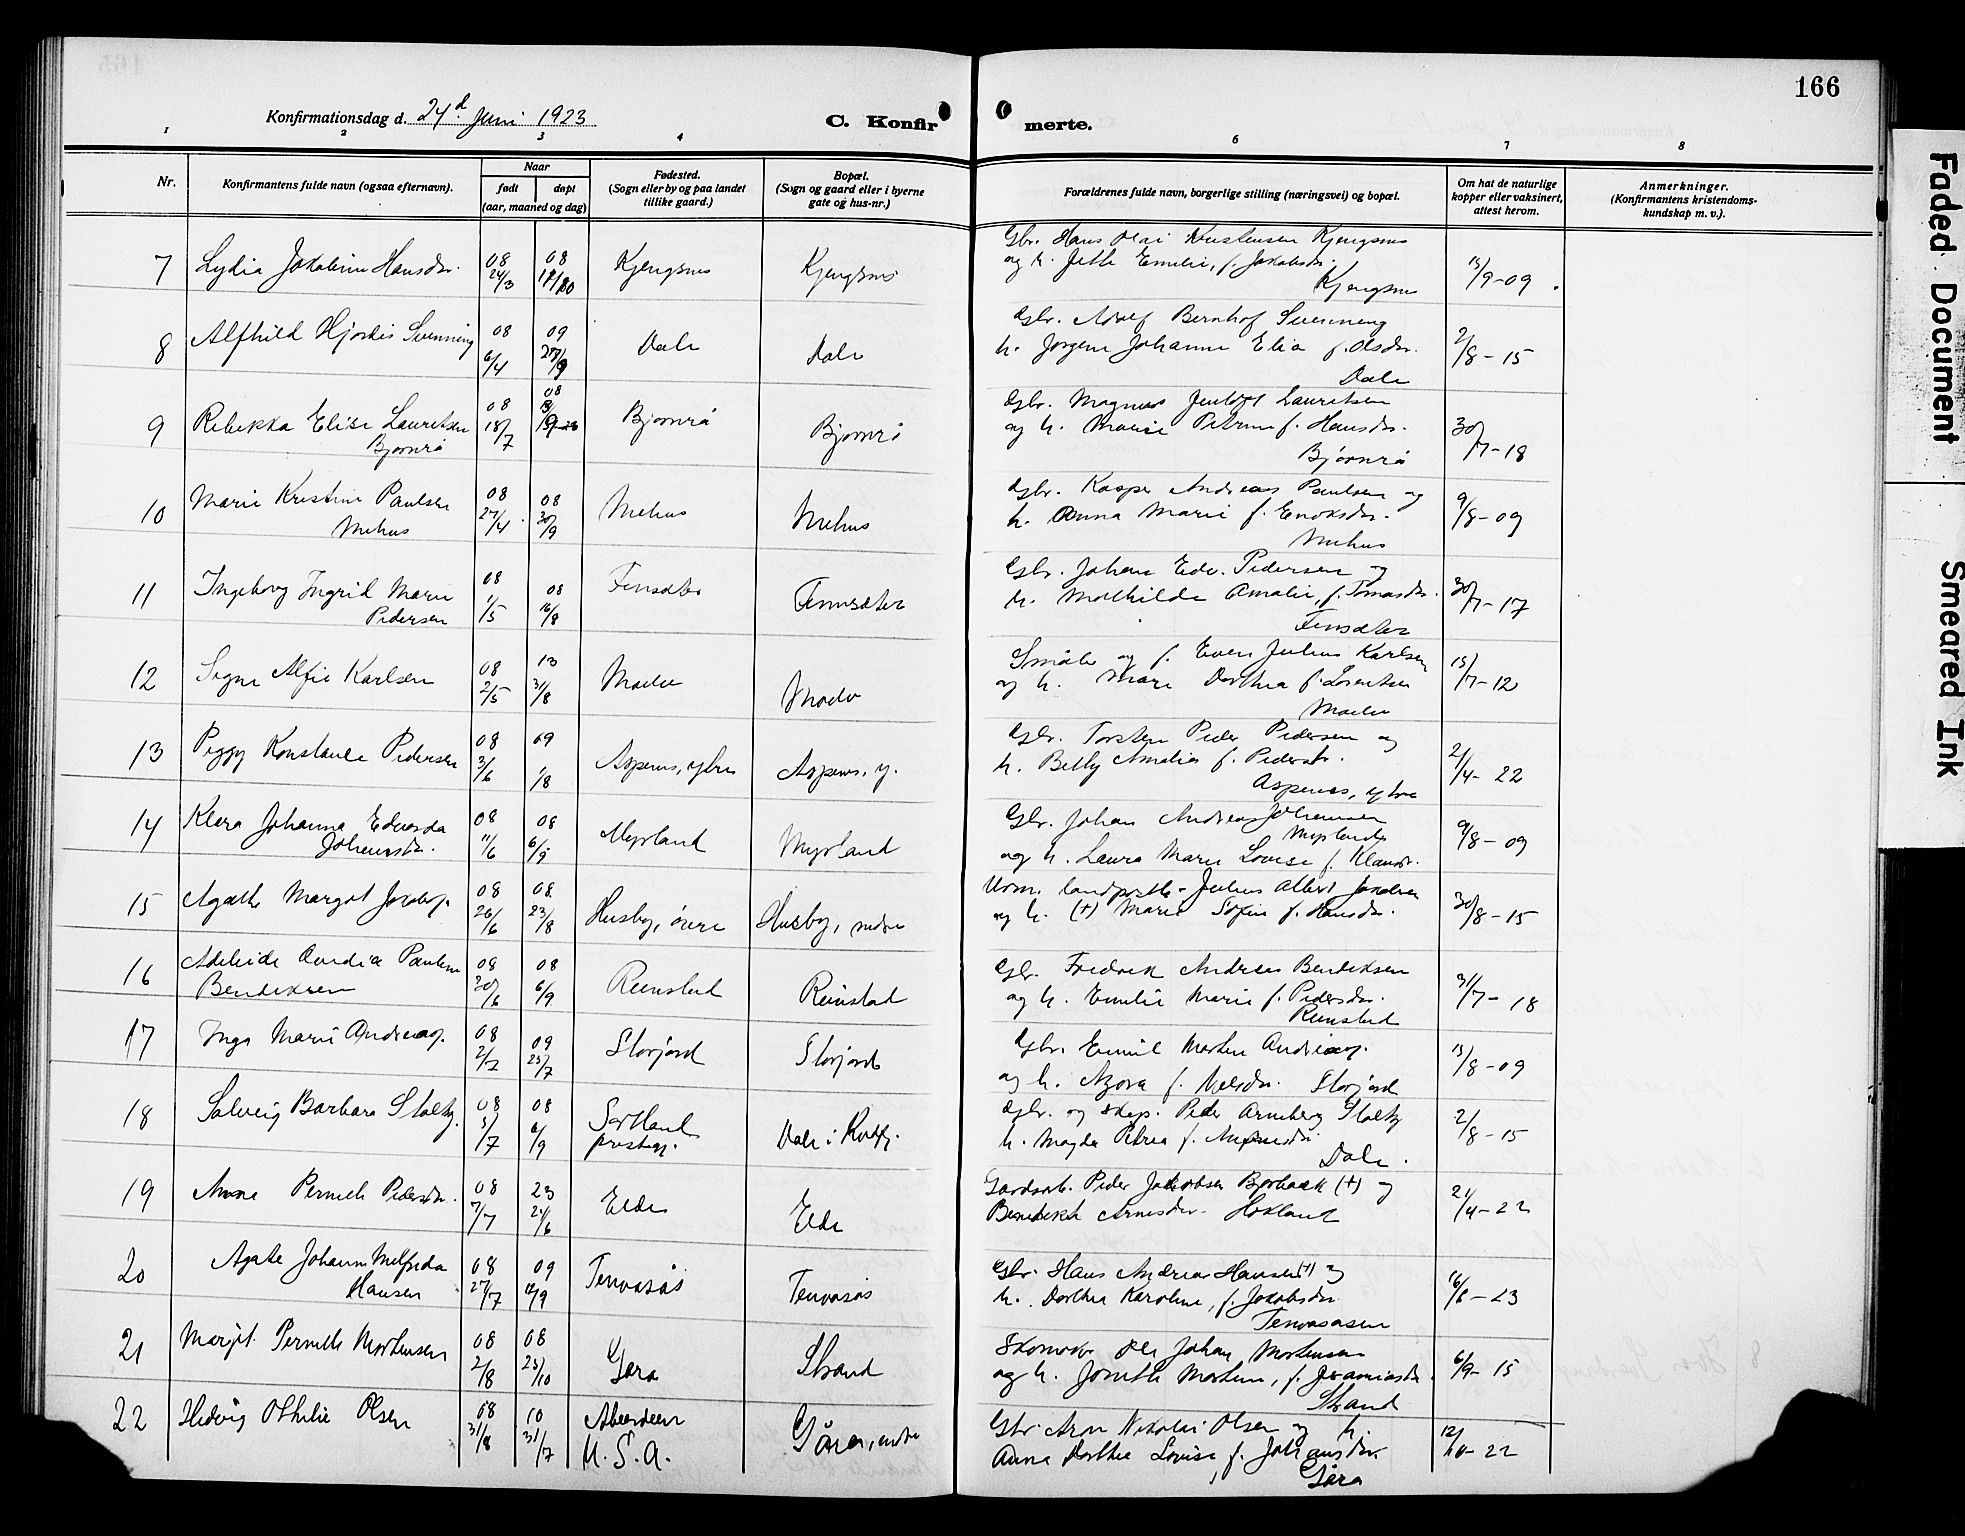 166
Konfirmationsdag d. 24d Juni 1923
C. Konfirmerte.
1 2 3 4 6 7 8
Nr.
Konfirmantens fulde navn (ogsaa efternavn).
Naar
født døpt
(aar, maaned og dag)
Fødested.
(Sogn eller by og paa landet
tillike gaard.)
Bopæl.
(Sogn og gaard eller i byerne
gate og hus-nr.)
Forældrenes fulde navn, borgerlige stilling (næringsvei) og bopæl.
Om hat de naturlige
kopper eller vaksinert,
attest herom.
Anmerkninger.
(Konfirmantens kristendoms-
kundskap m. v.).
7 Lydia Jakobine Hansdtr. 08 24/3 08 Kjengsnes Kjengsnes
Gbr. Hans Olai Kristensen Kjengsnes
og h. Jette Emilie, f. Jakobsdtr.
Kjengsnes
13/9-09
8 Alfhild Hjørdis Svenning 08 6/4 09 Dale Dale
Gbr. Adolf Bernhof Svenning
h. Jørgine Johanne Elia f. Olsdtr.
Dale
2/8-15
9 Rebekka Elise Lauritsen 08 18/7 08 Bjørnrå Bjørnrå
Bjørnrå
Gbr. Magnus Lauritsen
og h. Marie Petrine f. Hansdtr.
Bjørnrå
30/7-18
10 Marie Kristine Paulsen 08 27/4 08 20/9 Mehus Mehus
Mehus
Gbr. Kasper Andreas Paulsen og
h. Anna Marie f. Enoksdtr.
Mehus
9/8-09
11 Ingeborg Ingrid Marie 08 1/5 08 16/8 Finsæter Finnsæter
Pedersen
Gbr. Johan Edv. Pedersen og
h. Mathilde Amalie, f. Tomasdtr.
Finsæter
30/7-17
12 Signe Alfie Karlsen 08 2/5 13 31/8 Maelv Maelv
og f. Even Julius Karlsen
og h. Marie Dorthea f. Lorentsen
Maelv
15/7-12
13 Peggy Konstanse Pedersen 08 3/6 09 1/8 Aspenes, ytre Aspenes, y.
Gbr. Torsten Peder Pedersen og
h. Betty Amalie f. Pedersdtr.
Aspenes, ytre
2/4-22
14 Klara Johanna Edvarda 08 11/6 08 6/9 Myrland Myrland
Johansdtr.
Gbr. Johan Andreas Johansen
Myrland
og h. Laura Marie Lovise f. Klausdtr.
9/8-09
15 Agathe Margot Jakobsen 08 26/6 08 23/8 Husby, øvre Husby, nedre
Julius Albert Jakobsen
og h. (+) Marie Sofie f. Hansdtr.
30/8-15
16 Adeleide Pauline 08 30/6 08 6/9 Reinstad Reinstad
Bendiksen
Gbr. Fredrik Andreas Bendiksen
og h. Emilie Marie f. Pedersdtr.
Reinstad
31/7-18
17 Inga Marie Andreas. 08 2/7 09 25/7 Storjord Storjord
Gbr. Emil Morten Andreas.
og h. Azora f. Nelsdtr. Storjord
13/8-09
18 Solveig Barbara Stoltz. 08 5/7 08 6/9 Sortland prestegj. Dale i Kvæfj.
Gbr. og skip. Peder Arneberg Stoltz
h. Magda Petrea f.
Dale.
2/8-15
19 Anna Pernelle Pedersdtr. 08 7/7 23 24/6 Elde Elde
Gårdsarb. Peder Jakobsen (+) og
Benedikte Arnesdtr. Hokland
21/4-22
20 Agate Johanne Melfrida 08 27/7 09 12/9 Tenvasås Tenvasås
Hansen
Gbr. Hans Andreas Hansen (+) og
h. Dorthea Karoline, f. Jakobsdtr.
Tenvasåsen
16/6-23
21 Margit Pernelle Mortensen 08 2/8 08 25/10 Gara Strand
Skomaker Ole Johan Mortensen
og h. Jonette Martine, f. Jeramiasdtr.
Strand
6/9-15
22 Hedvig Othelie Olsen 08 31/8 10 31/7 Aberdeen U.S.A. Gåra, indre
Gbr. Aron Nikolai Olsen og h.
Anna Dorthea Lovise, f. Johansdtr.
Gåra
12/10-22
Faded Document
Smeared Ink